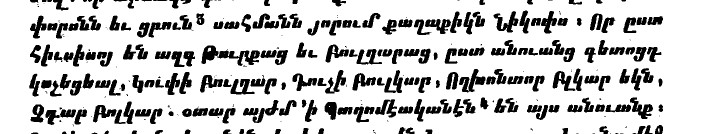 փորանն եւ ցրուն⁵ սահմանն յորում քաղաքիկն Նիկոփս : Որ ըստ
Հիւսիսոյ են ազգ Թուրքաց եւ Բուլղարաց, ըստ անուանց գետոցդ
կոչեցեալ, Կուփի Բուլղար, Դուչի Բուլկար, Ողխոնտոր Բլկար եկն,
Չդար Բոլկար . օտար այժմ ՚ի Պտղոմէականէն⁴ են այս անուանք :